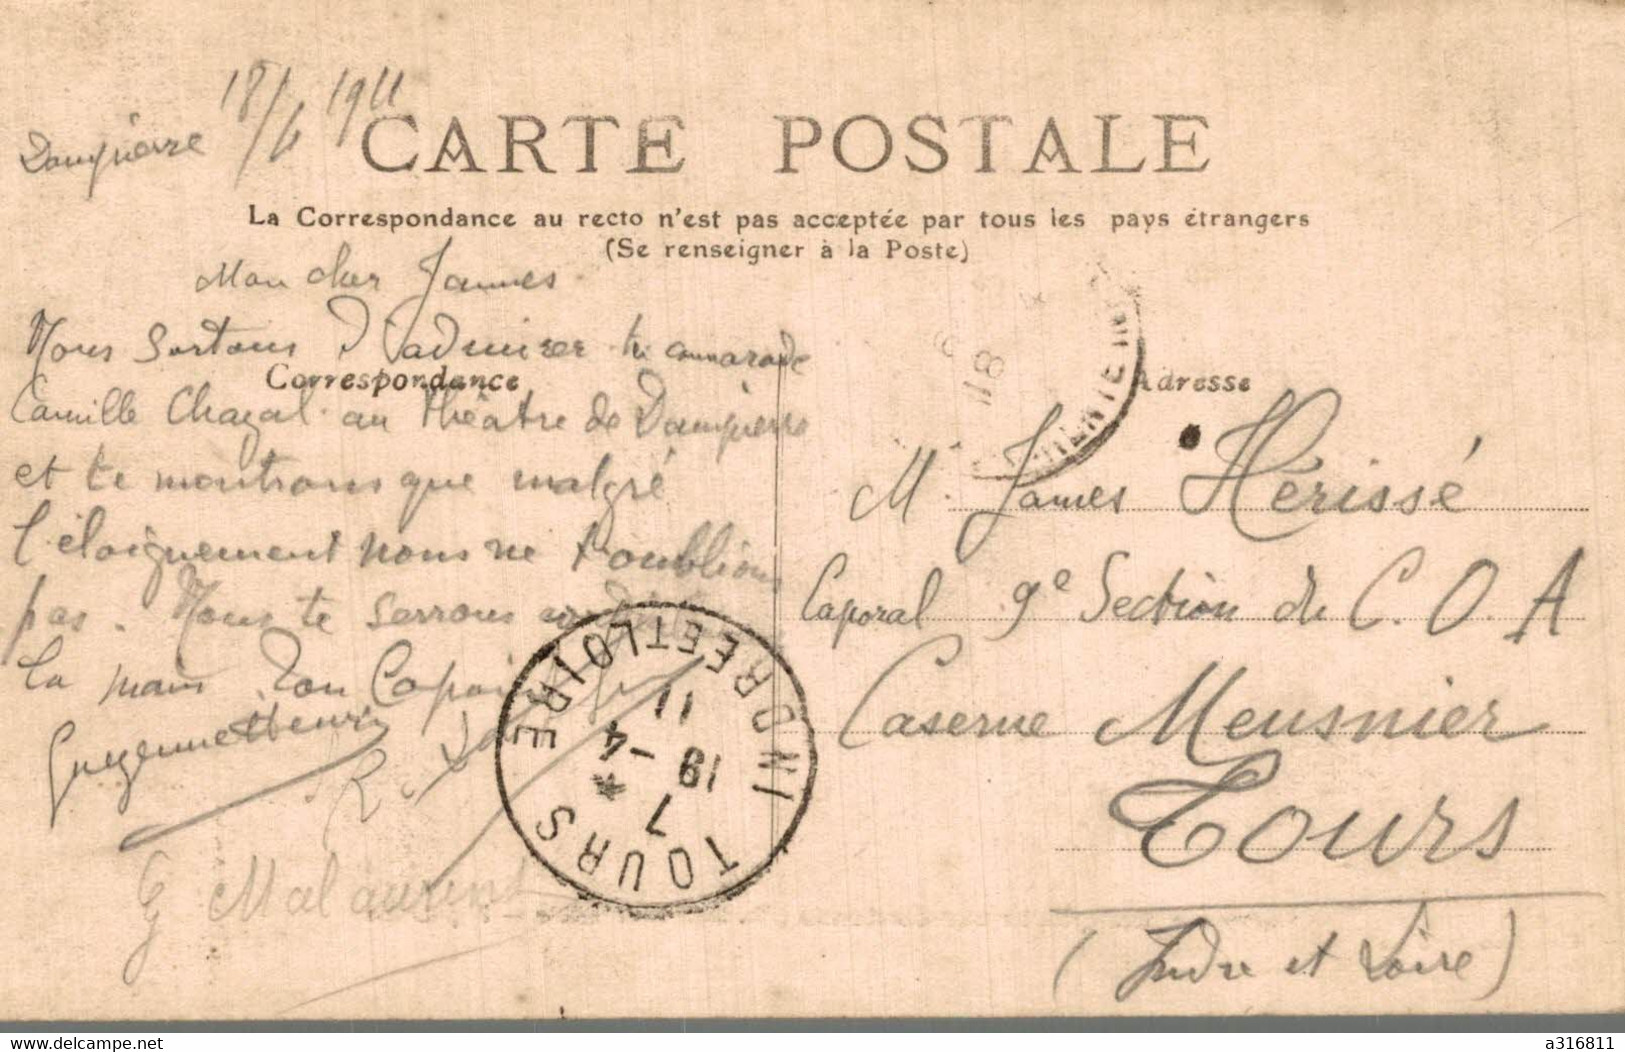 Dampierre 18/4 1911
CARTE POSTALE
La Correspondance au recto n'est pas acceptée par tous les pays étrangers
(Se renseigner à la Poste)
Mon cher James
Nous sortons d'admirer tn camarade
Correspondance
Camille Chazal au théâtre de Dampierre
et te montrons que malgré
l'éloignement nous ne t'oublions
pas. Nous te serrons
la main. Ton Copain
Guezenne Henri
R.
G Malaurent
Adresse
M. James Hérissé
Caporal 9e Section de C.O.A
Caserne Meusnier
Tours
(Indre et Loire)
TOURS INDRE ET LOIRE
7
19 - 4
11
18
delcampe.net
a316811